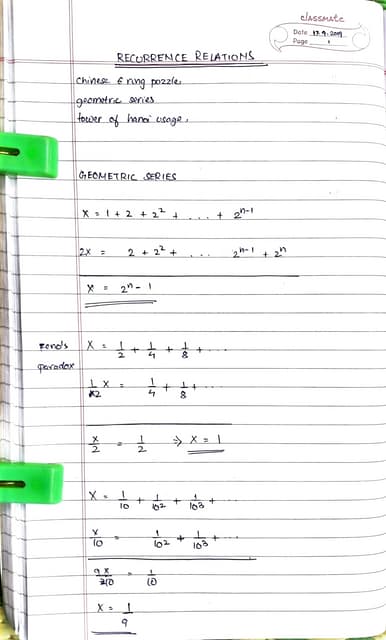 classmate
Date 17.9.2019
Page 1
RECURRENCE RELATIONS
Chinese 6 ring puzzle
geometric series
tower of hanoi usage.
GEOMETRIC SERIES
x = 1 + 2 + 2² + .... + 2ⁿ⁻¹
2x = 2 + 2² + ... 2ⁿ⁻¹ + 2ⁿ
x = 2ⁿ - 1
Zeno's paradox x = 1/2 + 1/4 + 1/8 + ...
1/2 x = 1/4 + 1/8 + ...
x/2 = 1/2 ⇒ x = 1
x = 1/10 + 1/10² + 1/10³ + ...
x/10 = 1/10² + 1/10³ + ...
9x/10 = 1/10
x = 1/9